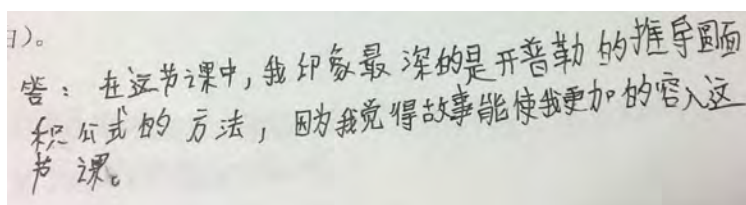 日)。
答：在这节课中，我印象最深的是开普勒的推导圆面
积公式的方法，因为我觉得故事能使我更加的容入这
节课。